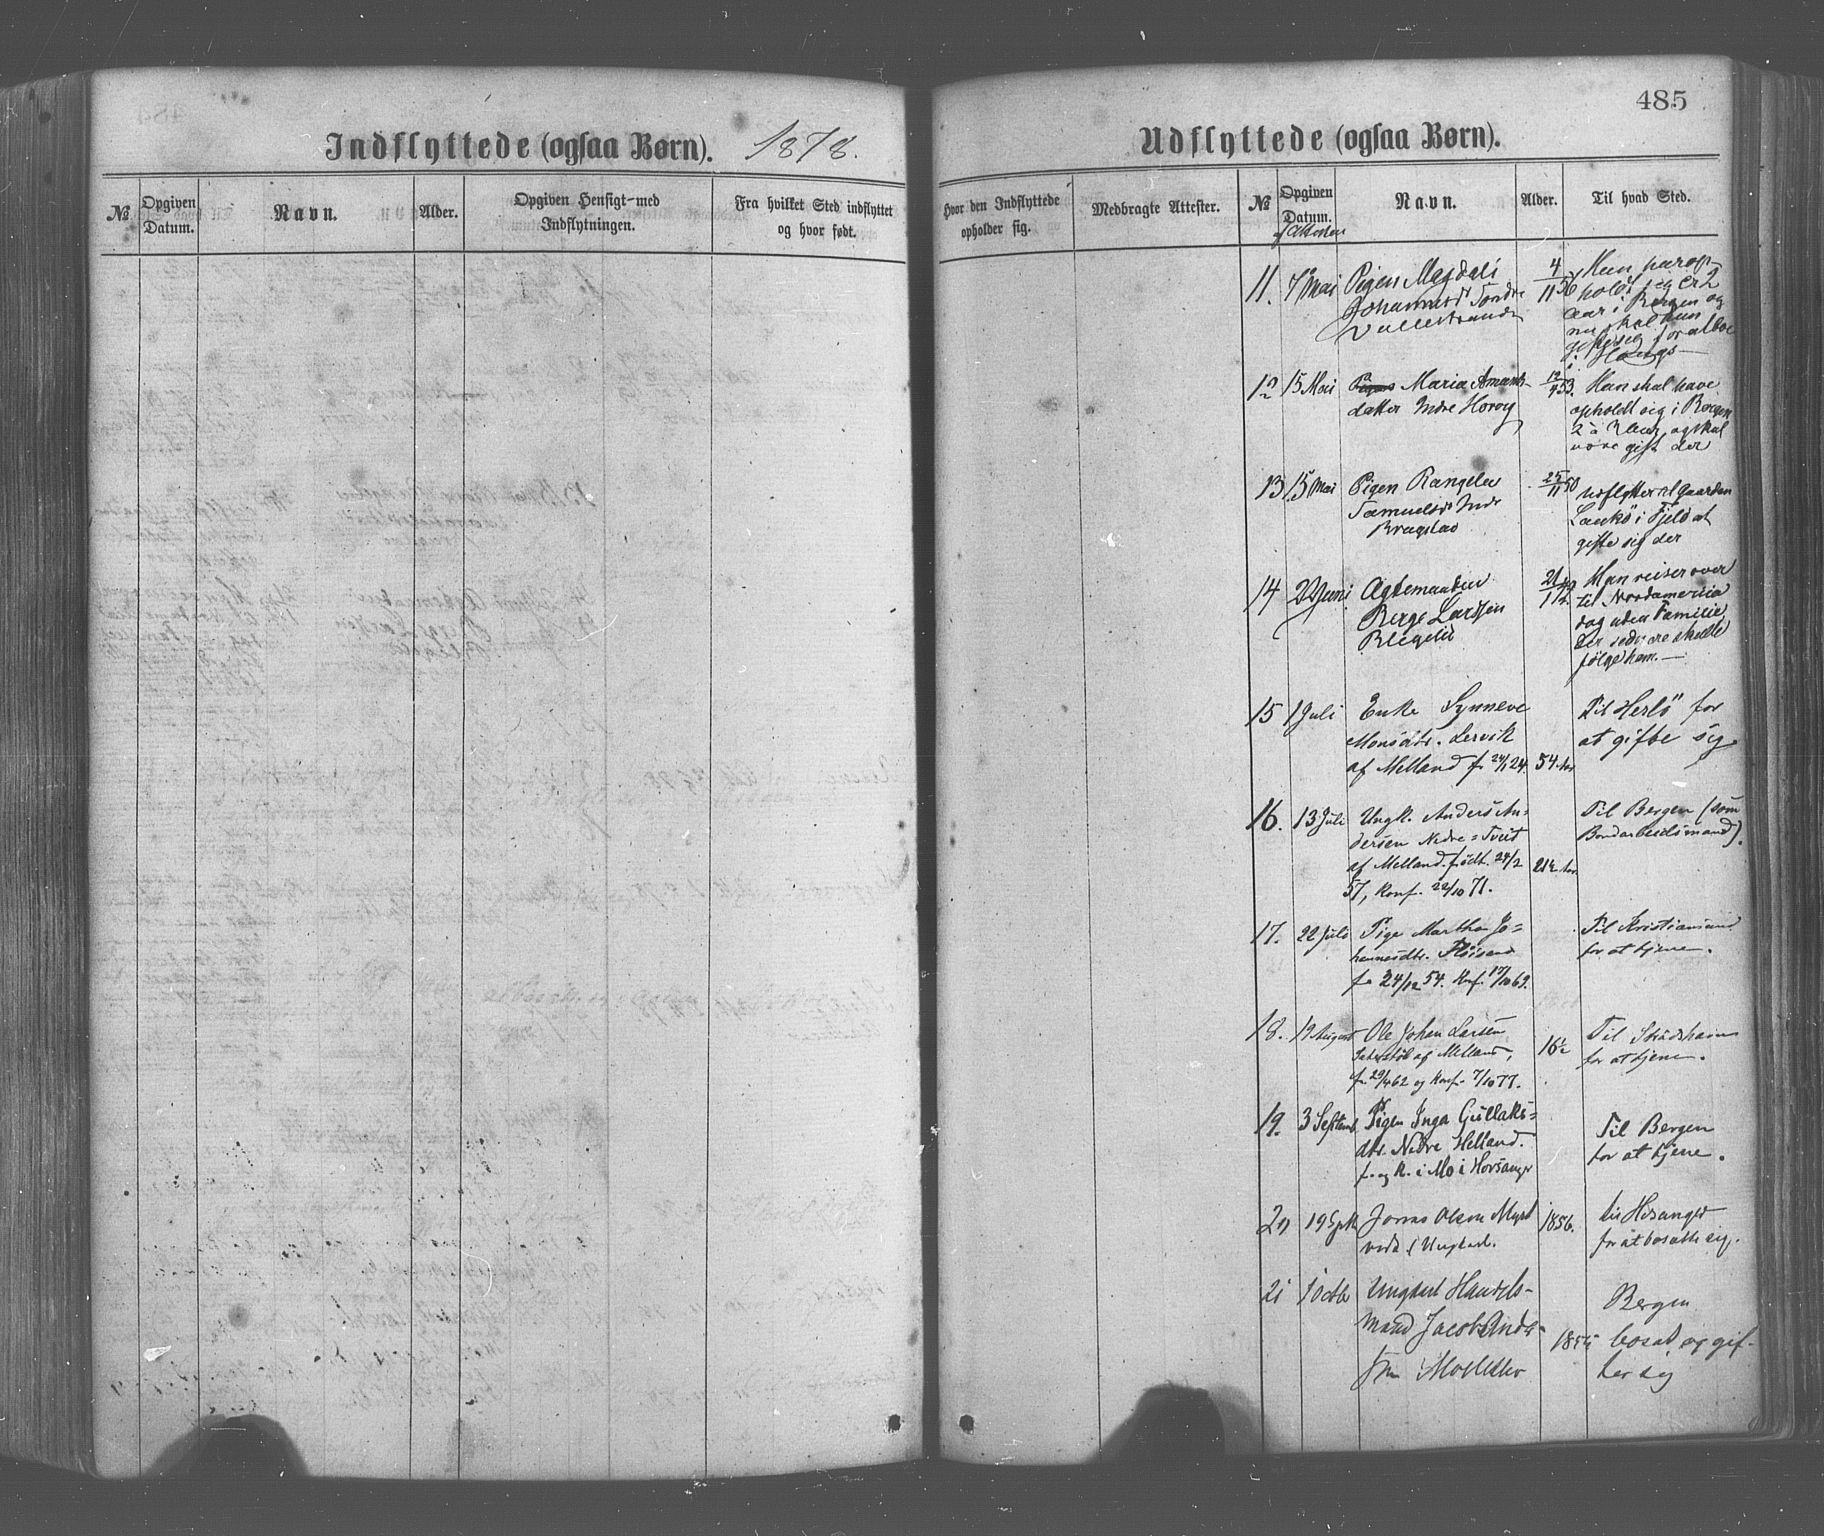 485
Indflyttede (ogsaa Børn). 1878.
Udflyttede (ogsaa Børn).
№ Opgiven Datum. Navn. Alder. Opgiven Hensigt med Indflytningen. Fra hvilket Sted indflyttet og hvor født.
Hvor den Indflyttede opholder sig. Medbragte Attester. № Opgiven Datum. Navn. Alder. Til hvad Sted.
af Attesten
11. 7 Mai Pigen Magdali
Johannesdr Søndre
4/11 56
Hun har op-
holdt sig er 2
aar i Bergen og
nu skal hun
gifte sig for at boe
12 15 Mai Maria Amunds-
datter Indre Horvey
12/4 53.
Hun skal have
opholdt sig i Bergen
2 à 3 Aar og skal
være gift der
13 15 Mai Pigen Rangela
Samuelsdr Indr
Bragstad
25/11 50
udflytter til Gaarden
i Fjeld at
gifte sig der
14 22 Juni Ægtemanden
Berge Larssen
Blegelid
21/1
Han reiser over
til Nordamerica
dog uden Familie
der sedvere skulle
følge ham.—
15 1 Juli Enke Synneve
Monsdtr. Lervik
af Melland f. 24/1 24. 54 Aar
Til Herlö for
at gifte sig
16. 13 Juli Ungk. Anders An=
dersen Nedre=Tveit
af Melland. født. 24/2
57, konf. 22/10 71.
21½ Aar.
Til Bergen (som
Bordarbeidsmand).
17. 22 Juli Pige Martha Jo=
hannesdtr. Fløisand
f. 24/12 54. Konf. 17/10 69.
Til Kristiansund
for at tjene.
18. 19 August Ole Johan Larsen
af Melland,
f. 29/4 62 og Konf. 7/10 77.
16½
Til
for at tjene.
19. 3 Septemb Pigen Inga Gullaks=
dtr. Nedre Helland.
f. og K. i Mo i Horsanger
Til Bergen
for at tjene.
20 19 Sptb Jonas Olsen Myrt
vedt / Ungkarl.
1856.
til Hosanger
for at bosætte sig.
21 1 Octbr Ungkarl Handels-
mand Jacob Anders-
sen
Bergen
bosat og gif-
ter sig